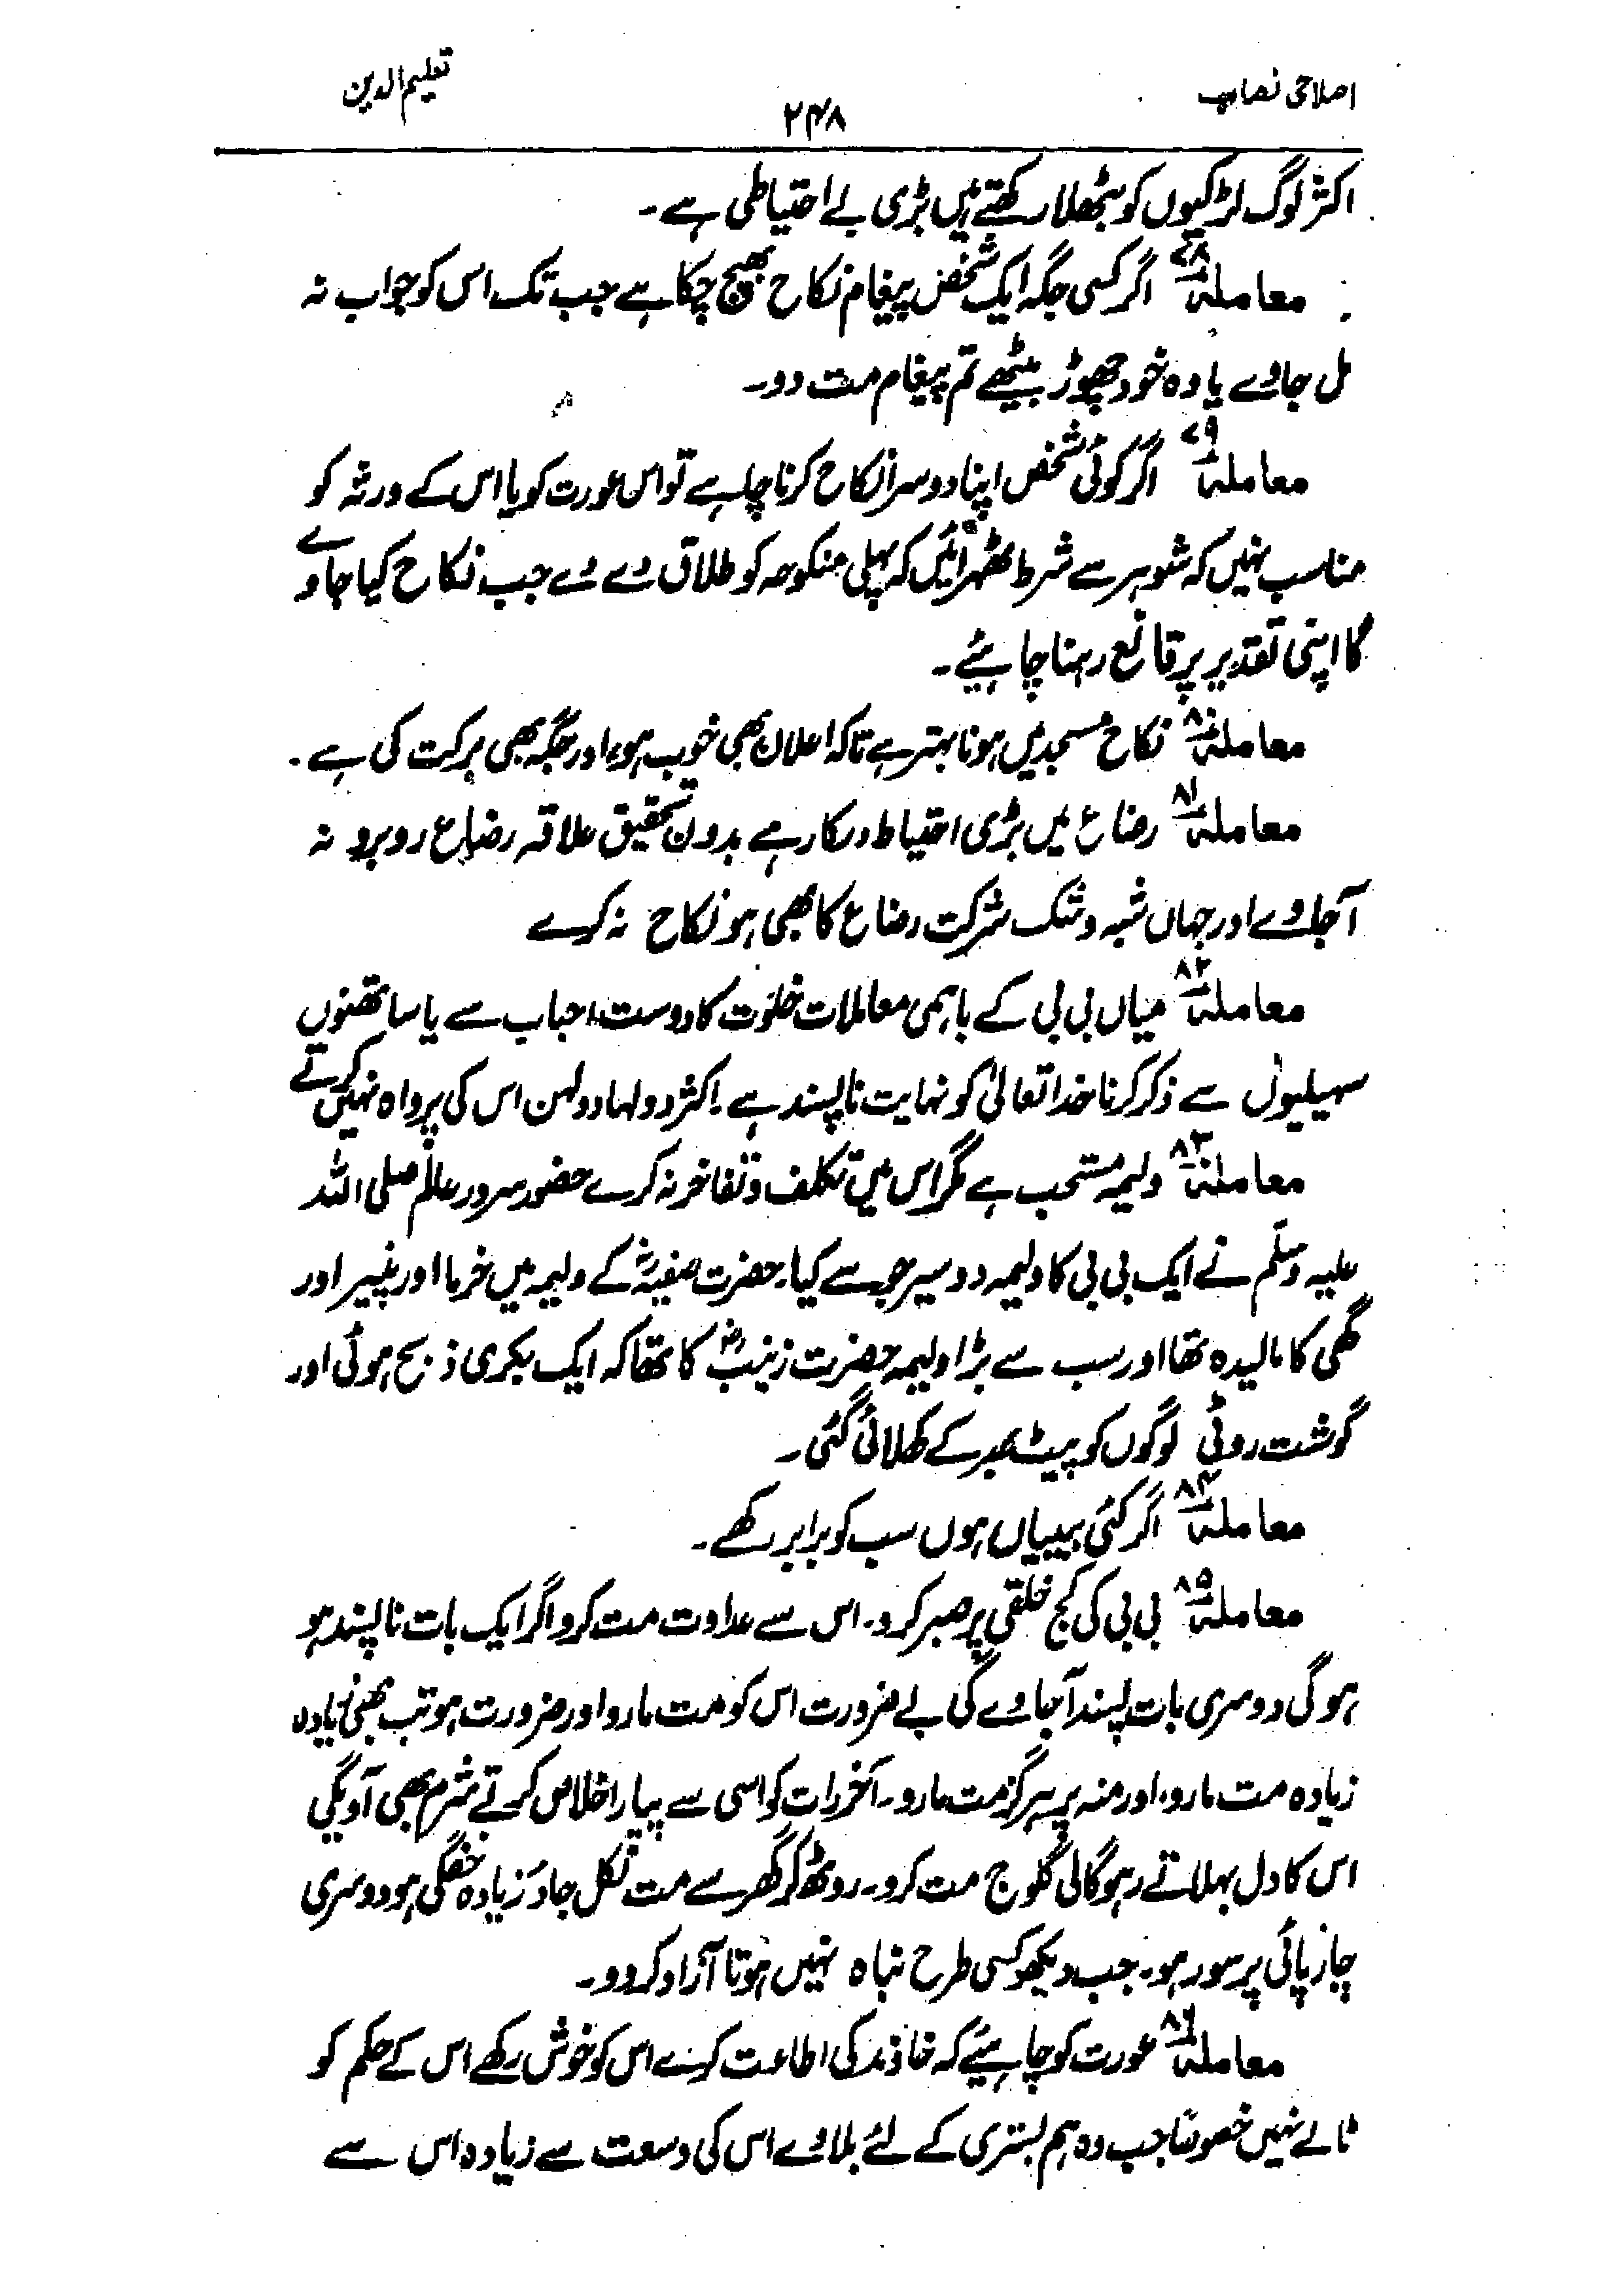 اصلاحی نصاب
۲۴۸
تعلیم الدین
اکثر لوگ لڑکیوں کو بٹھلا رکھتے ہیں بڑی بے احتیاطی ہے۔
معاملہ ۷۸ اگر کسی جگہ ایک شخص پیغام نکاح بھیج چکا ہے جب تک اس کو جواب نہ
مل جاوے یا وہ خود چھوڑ بیٹھے تم پیغام مت دو۔
معاملہ ۷۹ اگر کوئی شخص اپنا دوسرا نکاح کرنا چاہے تو اس عورت کو یا اس کے ورثہ کو
مناسب نہیں کہ شوہر سے شرط ٹھہرائیں کہ پہلی منکوحہ کو طلاق دے دے جب نکاح کیا جاوے
گا اپنی تقدیر پر قانع رہنا چاہئیے۔
معاملہ ۸۰ نکاح مسجد میں ہونا بہتر ہے تاکہ اعلان بھی خوب ہو، اور جگہ بھی برکت کی ہے۔
معاملہ ۸۱ رضاع میں بڑی احتیاط درکار ہے بدون تحقیق علاقہ رضاع روبرو نہ
آجاوے اور جہاں شبہ و شک شرکت رضاع کا بھی ہو نکاح نہ کرے
معاملہ ۸۲ میاں بی بی کے باہمی معاملات خلوت کا دوست احباب سے یا ساتھنوں
سہیلیوں سے ذکر کرنا خدا تعالیٰ کو نہایت ناپسند ہے۔ اکثر دولہا دولہن اس کی پرواہ نہیں کرتے
معاملہ ۸۳ ولیمہ مستحب ہے مگر اس میں تکلف و تفاخر نہ کرے حضور سرور عالم صلی اللہ
علیہ وسلم نے ایک بی بی کا ولیمہ دو سیر جو سے کیا۔ حضرت صفیہؓ کے ولیمہ میں خرما اور پنیر اور
گھی کا مالیدہ تھا اور سب سے بڑا ولیمہ حضرت زینبؓ کا تھا کہ ایک بکری ذبح ہوئی اور
گوشت روٹی لوگوں کو پیٹ بھر کے کھلائی گئی۔
معاملہ ۸۴ اگر کئی بیبیاں ہوں سب کو برابر رکھے۔
معاملہ ۸۵ بی بی کی کج خلقی پر صبر کرو۔ اس سے عداوت مت کرو اگر ایک بات ناپسند ہو
ہوگی دوسری بات پسند آجاوے گی بے ضرورت اس کو مت مارو اور ضرورت ہو تب بھی زیادہ
زیادہ مت مارو، اور منہ پر ہرگز مت مارو۔ آخر رات کو اسی سے پیار اخلاص کرتے شرم بھی آویگی
اس کا دل بہلاتے رہو گالی گلوج مت کرو۔ روٹھ کر گھر سے مت نکل جاؤ زیادہ خفگی ہو دوسری
چارپائی پر سو رہو۔ جب دیکھو کسی طرح نباہ نہیں ہوتا آزاد کر دو۔
معاملہ ۸۶ عورت کو چاہئیے کہ خاوند کی اطاعت کرے اس کو خوش رکھے اس کے حکم کو
ٹالے نہیں خصوصاً جب وہ ہم بستری کے لئے بلاوے اس کی وسعت سے زیادہ اس سے